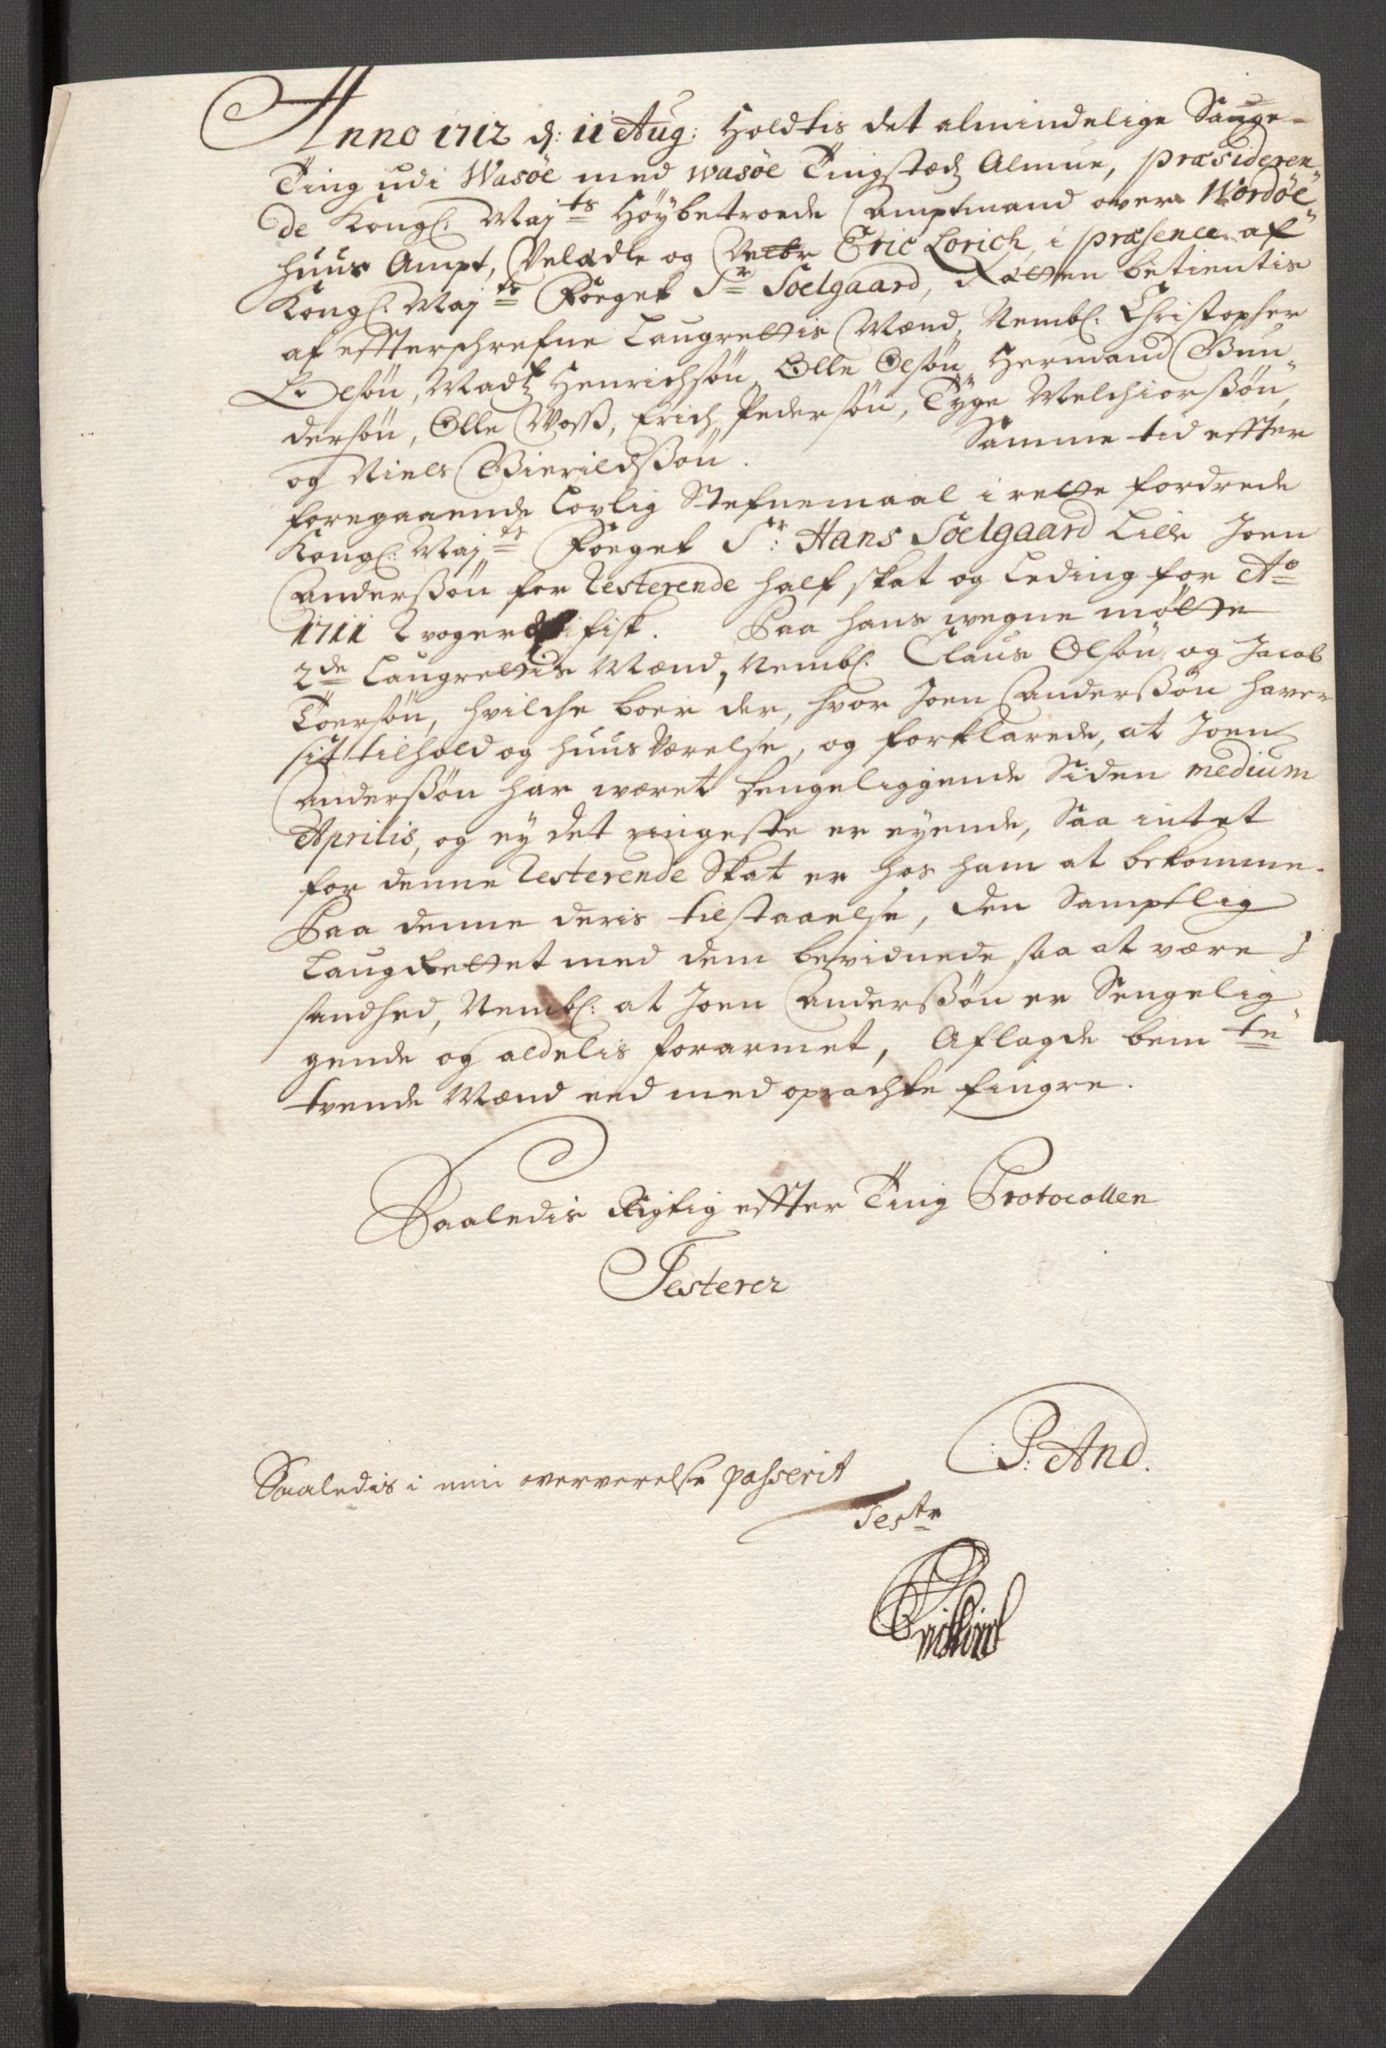 Anno 1712 d: 11 Aug: Holdtis det almindelige Sauge-
Ting udi Wasöe med wasöe Tingstædz Almue, præsideren-
de Kongl: Maj ts Höybetroede Amptmand over Wördöe-
huus Ampt, Velædle og Velbr Eric Lorich, i præsence af
Kongl: Maj ts Foeget Sr Soelgaard, Rætten betientis
af effterschrefne Laugrettis Mænd, Nembl: Christopher
Olsön, Madtz Henrichsön, Olle Olsön, Hermand Gun-
dersön, Olle Moss, Erich Pedersön, Tyge Melchiorssön,
og Niels Bierildssön. Samme tid effter
foregaaende Lovlig Stefnemaal i rette fordrede
Kongl: Maj ts Foeget Sr: Hans Soelgaard Lille Joen
Anderssön for Resterende half skat og Leding for Ao
1711 2 voger fisk. Paa hans wegne mötte
2de Laugrettis Mænd, Nembl: Claus Olsön og Jacob
Toersön, hvilche boer der, hvor Joen Anderssön haver
sit tilhold og huus værelse, og forklarede, at Joen
Anderssön har været sengeliggende Siden medium
Aprilis, og ey det ringeste er eyende, Saa intet
for denne Resterende Skat er hos ham at bekomme.
Paa denne deris tilstaaelse, den Samptlig
Laugrettet med dem bevidnede saa at være i
sandhed, Nembl: at Joen Anderssön er Sengelig
gende og aldelis forarmet, Aflagde bem te
tvende Mænd eed med oprachte fingre.
Saaledis Rigtig effter Ting Protocollen
Testerer
P: And.
Saaledis i min oververelse passerit
Test